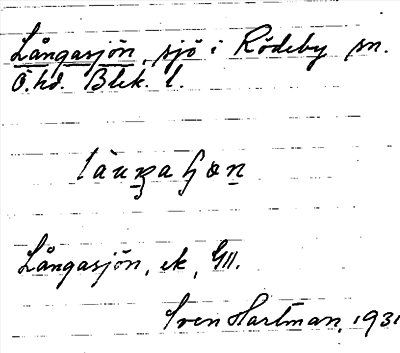 Långasjön, sjö i Rödeby sn.
Ö. hd. Blek. l.
Långasjön, ek, GII.
Sven Hartman, 1931